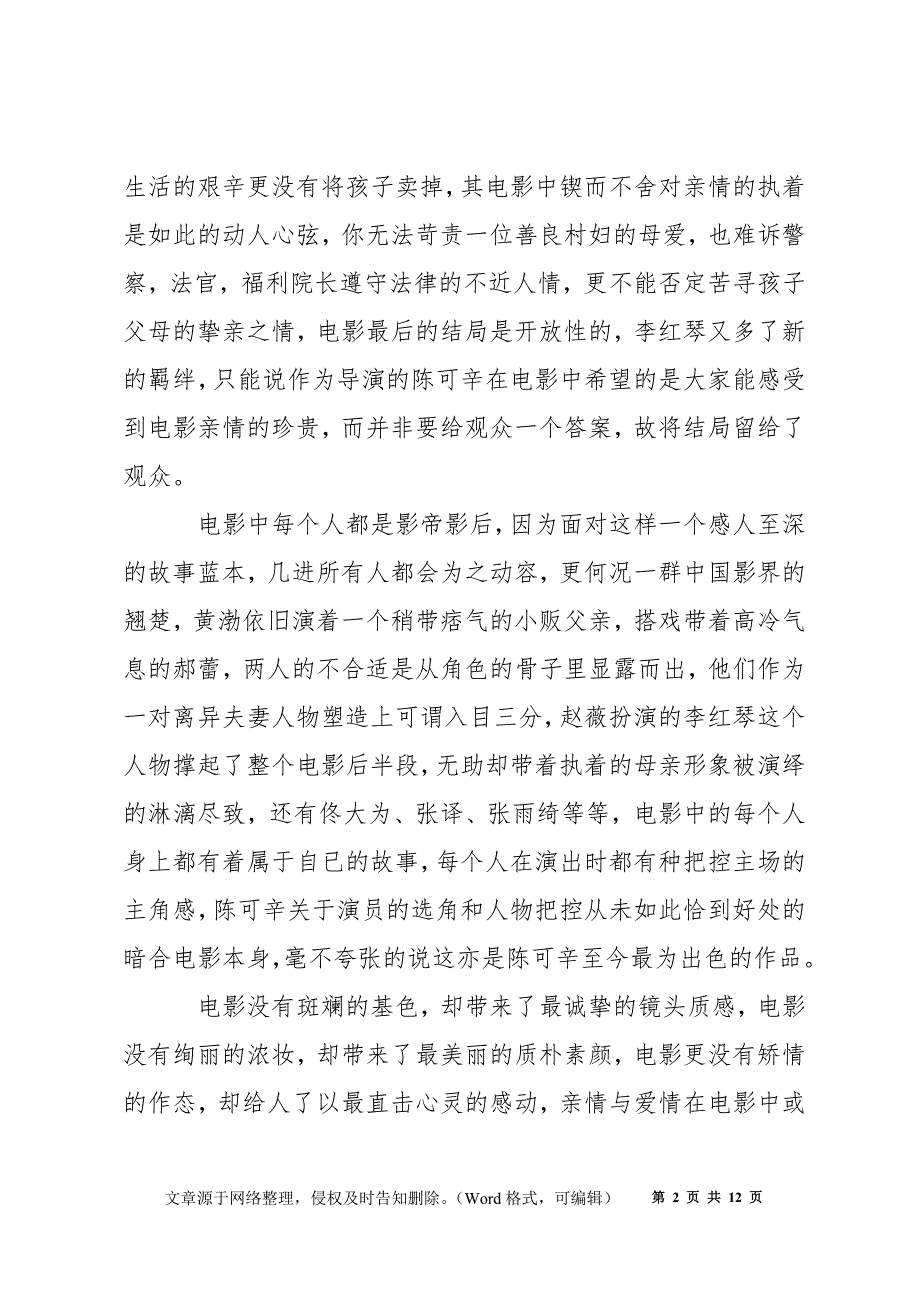 生活的艰辛更没有将孩子卖掉，其电影中锲而不舍对亲情的执着
是如此的动人心弦，你无法苛责一位善良村妇的母爱，也难诉警
察，法官，福利院长遵守法律的不近人情，更不能否定苦寻孩子
父母的挚亲之情，电影最后的结局是开放性的，李红琴又多了新
的羁绊，只能说作为导演的陈可辛在电影中希望的是大家能感受
到电影亲情的珍贵，而并非要给观众一个答案，故将结局留给了
观众。
电影中每个人都是影帝影后，因为面对这样一个感人至深
的故事蓝本，几进所有人都会为之动容，更何况一群中国影界的
翘楚，黄渤依旧演着一个稍带痞气的小贩父亲，搭戏带着高冷气
息的郝蕾，两人的不合适是从角色的骨子里显露而出，他们作为
一对离异夫妻人物塑造上可谓入目三分，赵薇扮演的李红琴这个
人物撑起了整个电影后半段，无助却带着执着的母亲形象被演绎
的淋漓尽致，还有佟大为、张译、张雨绮等等，电影中的每个人
身上都有着属于自已的故事，每个人在演出时都有种把控主场的
主角感，陈可辛关于演员的选角和人物把控从未如此恰到好处的
暗合电影本身，毫不夸张的说这亦是陈可辛至今最为出色的作品。
电影没有斑斓的基色，却带来了最诚挚的镜头质感，电影
没有绚丽的浓妆，却带来了最美丽的质朴素颜，电影更没有矫情
的作态，却给人了以最直击心灵的感动，亲情与爱情在电影中或
文章源于网络整理，侵权及时告知删除。（Word 格式，可编辑） 第 2 页 共 12 页